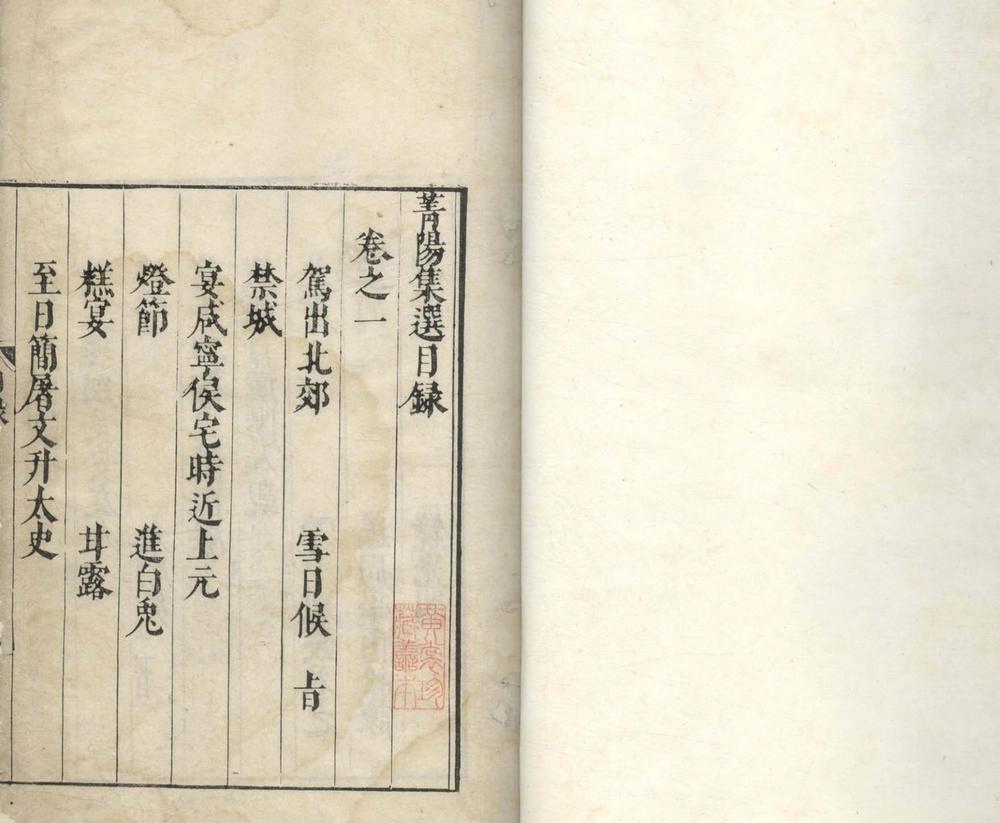 菁陽集選目録
卷之一
駕出北郊　雪日候　旨
禁城
宴咸寧侯宅時近上元
燈節　進白兎
糕宴　甘露
至日簡屠文升太史
黄裳珍
藏善本